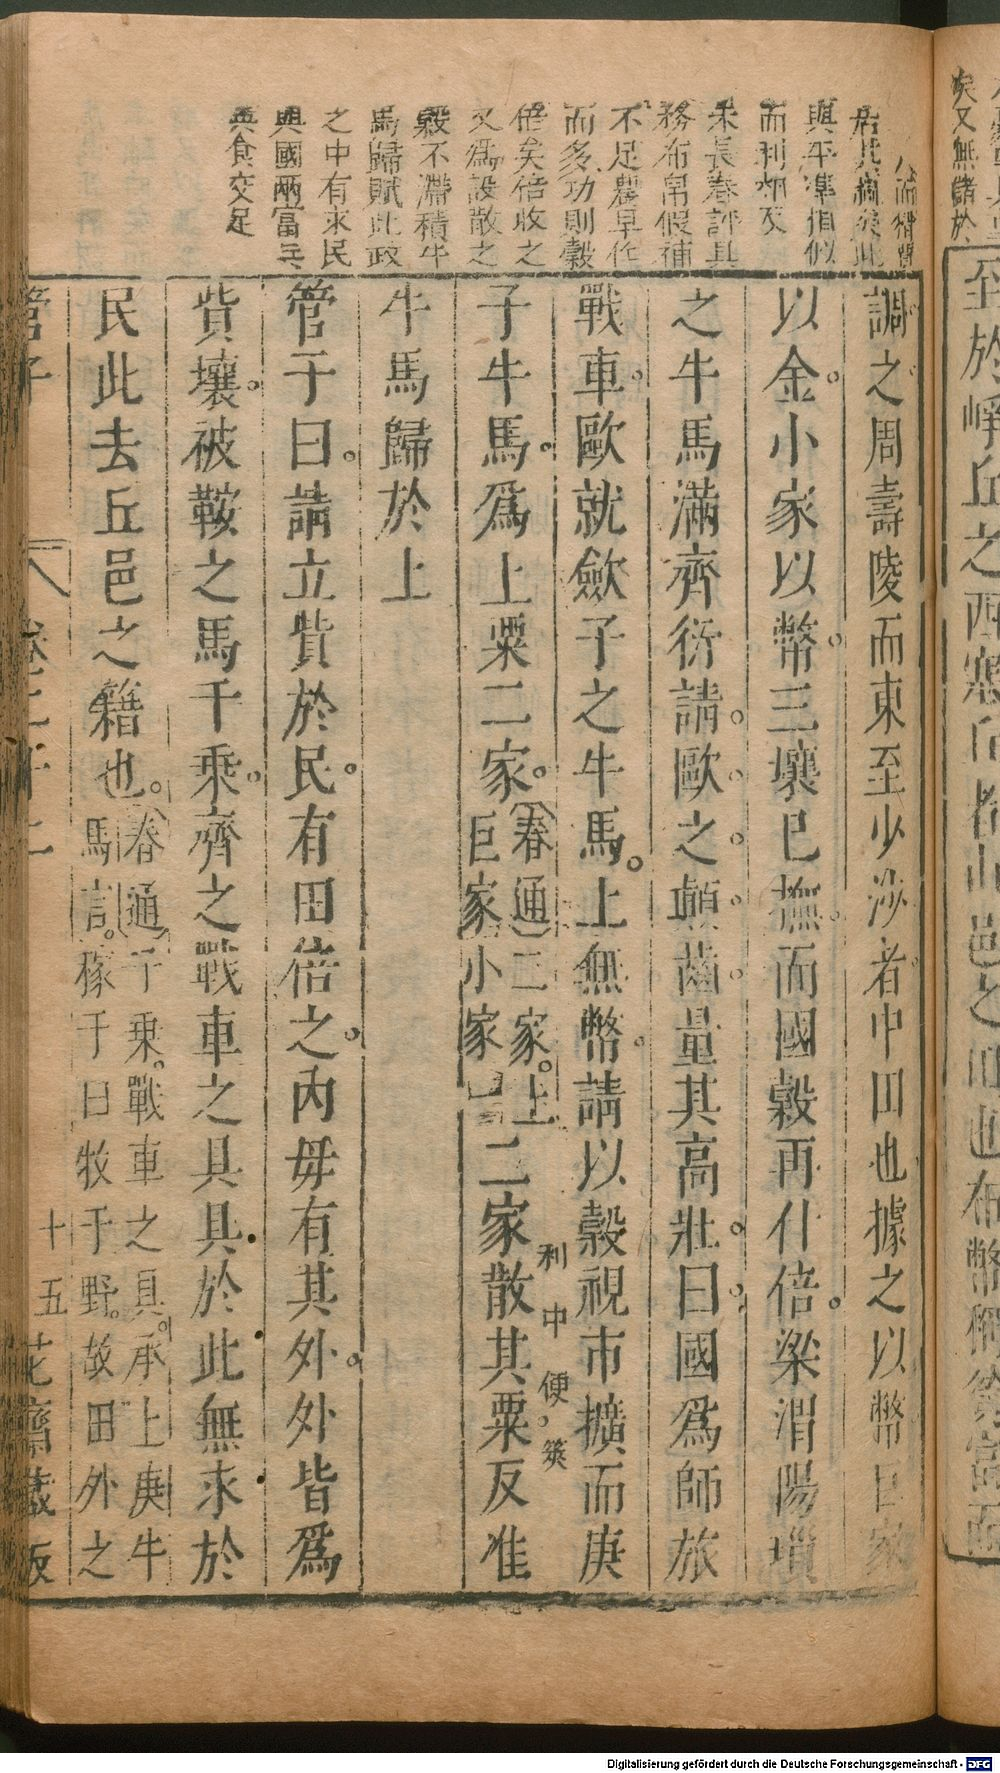 至於崢丘之西塞丘者山邑之田也布幣稱貧富而
調之周壽陵而東至少沙者中田也據之以幣巨家
以金小家以幣三壤已撫而國穀再什倍梁渭陽瑣
之牛馬滿齊衍請歐之顛齒量其高壯曰國爲師旅
戰車歐就斂子之牛馬上無幣請以穀視市擴而庚
子牛馬爲上粟二家二家散其粟反准
春通二家上
巨家小家
利中便筴
牛馬歸於上
管子曰請立貲於民有田倍之內毋有其外外皆爲
貲壤被鞍之馬千乘齊之戰車之具具於此無求於
民此去丘邑之籍也
春通千乘戰車之具承上庚牛
馬言稼于曰牧于野故田外之
管子
卷二十二
十五
花齋藏板
矣又無儲於
而利
未長春評具
務布帛假補
不足農早作
而多功則穀
倍矣倍收之
又爲設散之
穀不滯積牛
馬歸賦此政
之中有求民
興國兩富兵
與食交足
Digitalisierung gefördert durch die Deutsche Forschungsgemeinschaft - DFG